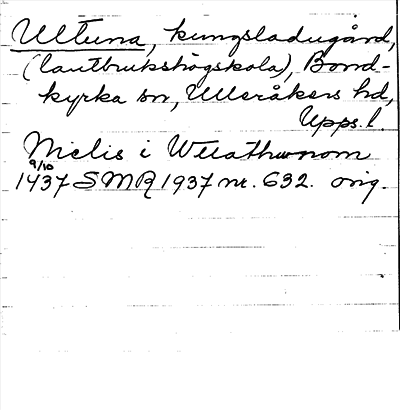 Ultuna, kungsladugård,
(lantbrukshögskola), Bond-
kyrka sn, Ulleråkers hd,
Upps. l.
Melis i Wllathunom
9/10
1437 SMR 1937 nr. 632. orig.